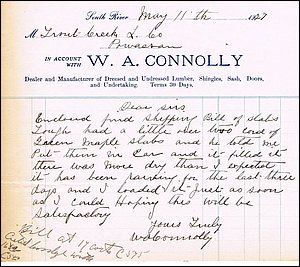 South River, May 11th 1927
M Trout Creek L. Co
Powassan
IN ACCOUNT WITH W. A. CONNOLLY
Dealer and Manufacturer of Dressed and Undressed Lumber, Shingles, Sash, Doors,
and Undertaking. Terms 30 Days.
Dear Sirs
Enclosed find Shipping Bill of slabs
Lough had a little over two cord of
Green Maple slabs and he told me
Put them in Car and it filled it
there was more dry than I expected
it has been raining for the last three
days and I loaded it just as soon
as I could Hoping this will be
Satisfactory
Yours Truly
WAConnolly
Bill at 17 cords